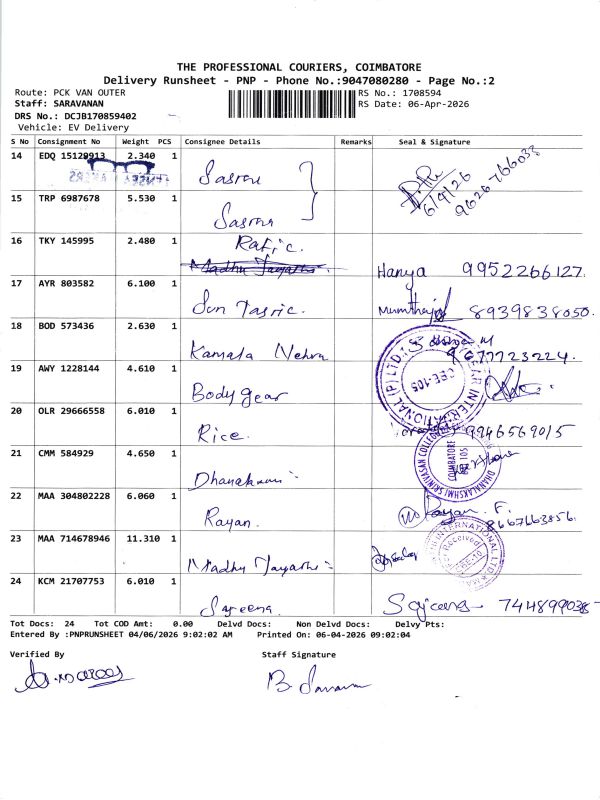 THE PROFESSIONAL COURIERS, COIMBATORE
Delivery Runsheet - PNP - Phone No.:9047080280 - Page No.:2
Route: PCK VAN OUTER
RS No.: 1708594
Staff: SARAVANAN
RS Date: 06-Apr-2026
DRS No.: DCJB170859402
Vehicle: EV Delivery
S No Consignment No Weight PCS Consignee Details Remarks Seal & Signature
14 EDQ 15129913 2.340 1
6/4/26
9626766038
15 TRP 6987678 5.530 1
16 TKY 145995 2.480 1 Rafic.
Madhu Jayanthi.
Hanya 9952266127.
17 AYR 803582 6.100 1
8939838050.
18 BOD 573436 2.630 1 Kamala Nehru
9677723224.
CBE-105
19 AWY 1228144 4.610 1 Body gear
20 OLR 29666558 6.010 1 Rice.
9946569015
21 CMM 584929 4.650 1
COIMBATORE
22 MAA 304802228 6.060 1 Rayan.
Rayan. F.
8667663856.
23 MAA 714678946 11.310 1
Received
24 KCM 21707753 6.010 1 Sajeena.
Sajeena 744899038-
Tot Docs: 24 Tot COD Amt: 0.00 Delvd Docs: Non Delvd Docs: Delvy Pts:
Entered By :PNPRUNSHEET 04/06/2026 9:02:02 AM Printed On: 06-04-2026 09:02:04
Verified By Staff Signature